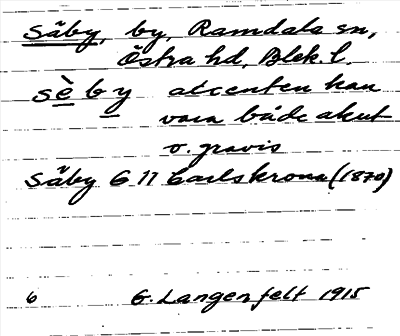 Säby, by, Ramdala sn,
Östra hd, Blek. l.
sè by accenten kan
vara både akut
o. gravis
Säby 6 11 Carlskrona (1870)
6 G. Langenfelt 1915